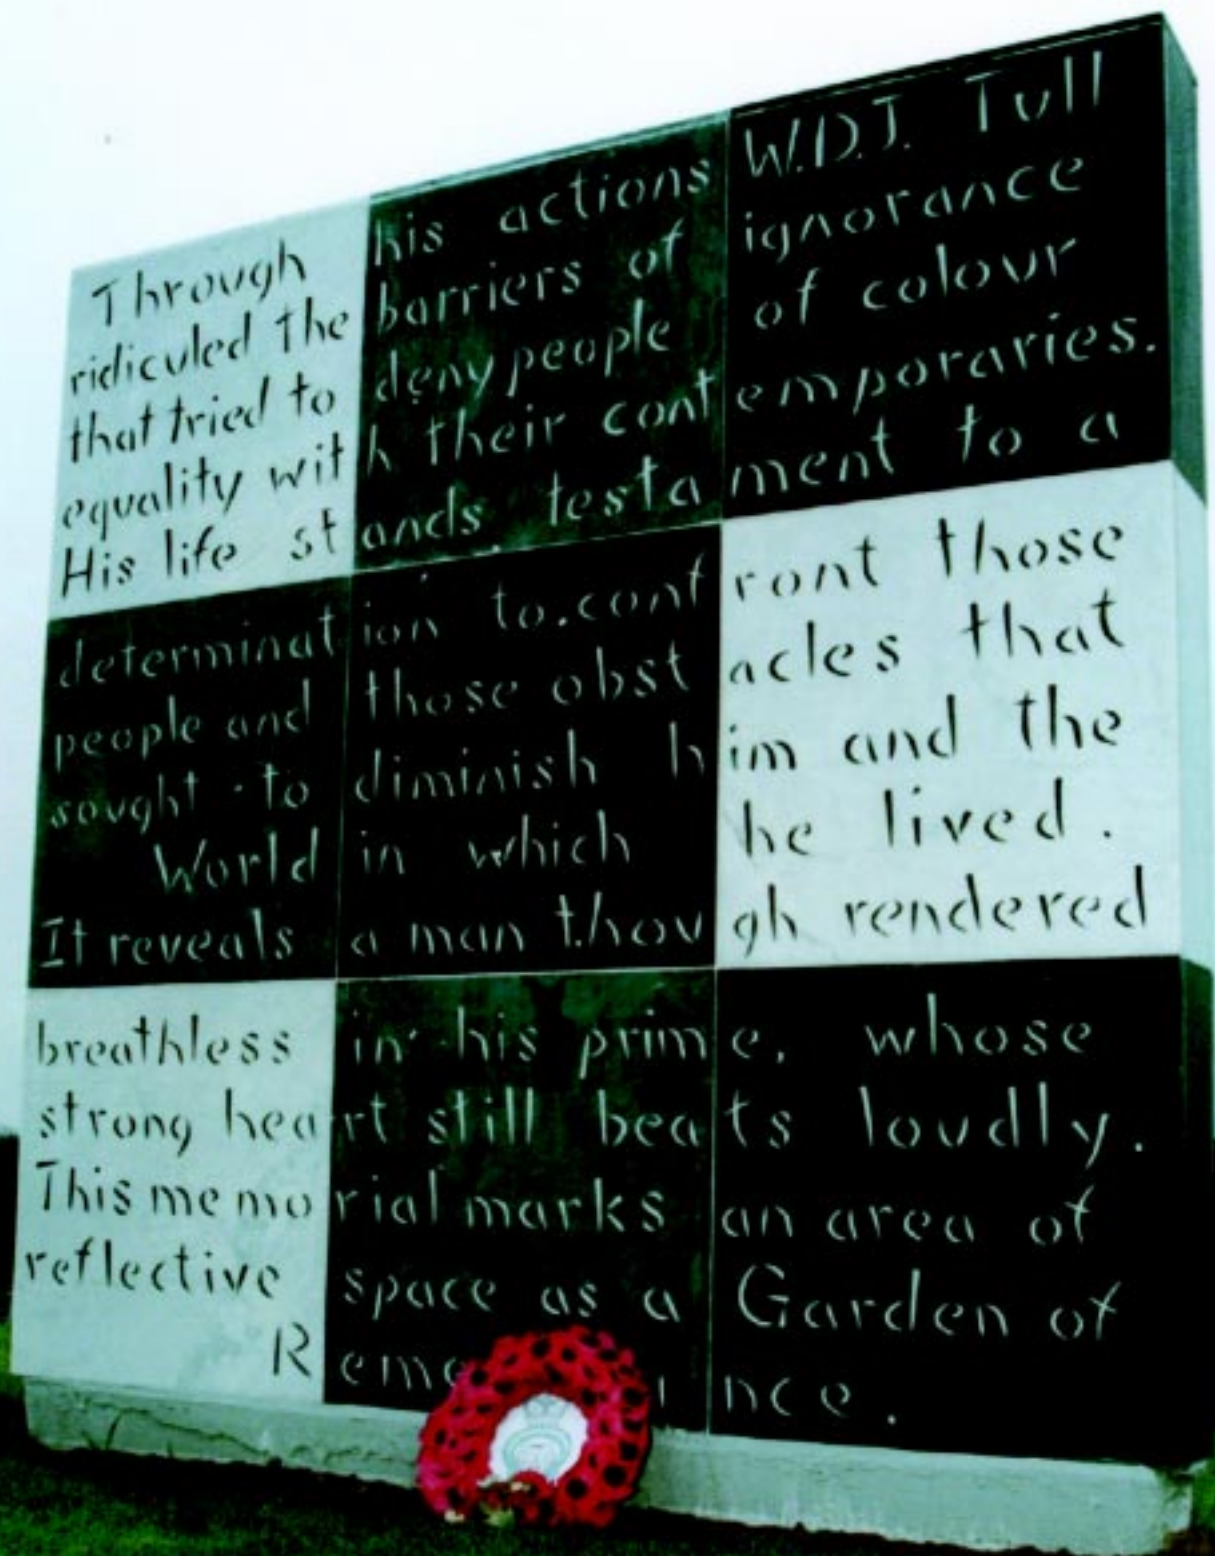 Through his actions W.D.J. Tull
ridiculed the barriers of ignorance
that tried to deny people of colour
equality with their contemporaries.
His life stands testament to a
determination to confront those
people and those obstacles that
sought to diminish him and the
World in which he lived.
It reveals a man though rendered
breathless in his prime, whose
strong heart still beats loudly.
This memorial marks an area of
reflective space as a Garden of